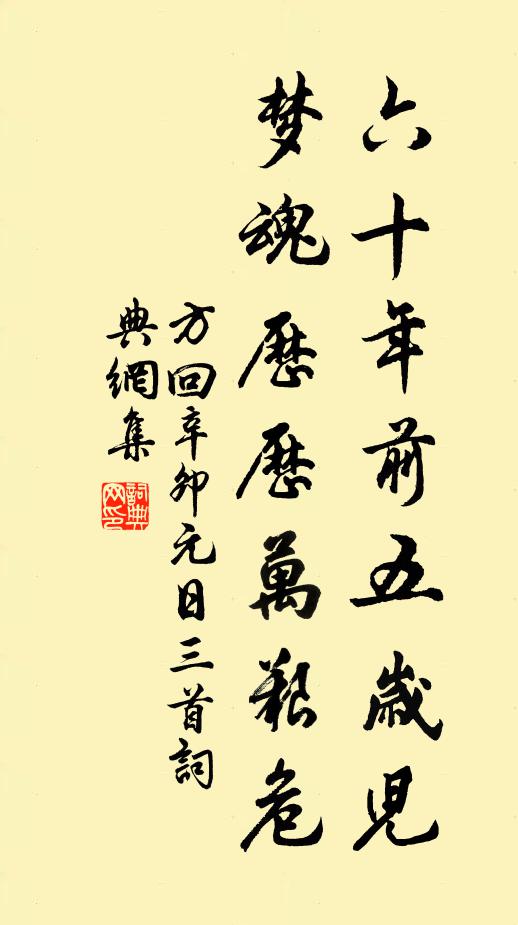 六十年前五歲児
梦魂歷歷萬艱危
方回辛卯元日三首詞
典網集
詞典
网印